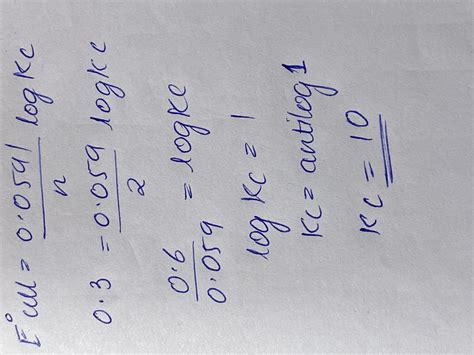 E°cell = 0.0591/n log Kc
0.3 = 0.059/2 log Kc
0.6/0.059 = log Kc
log Kc = 1
Kc = antilog 1
Kc = 10